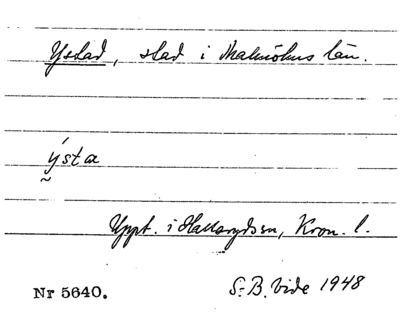 Ystad, stad i Malmöhus län.
ýsta
Uppt. i Hallaryds sn, Kron. l.
Nr 5640.
S. B. Vide 1948